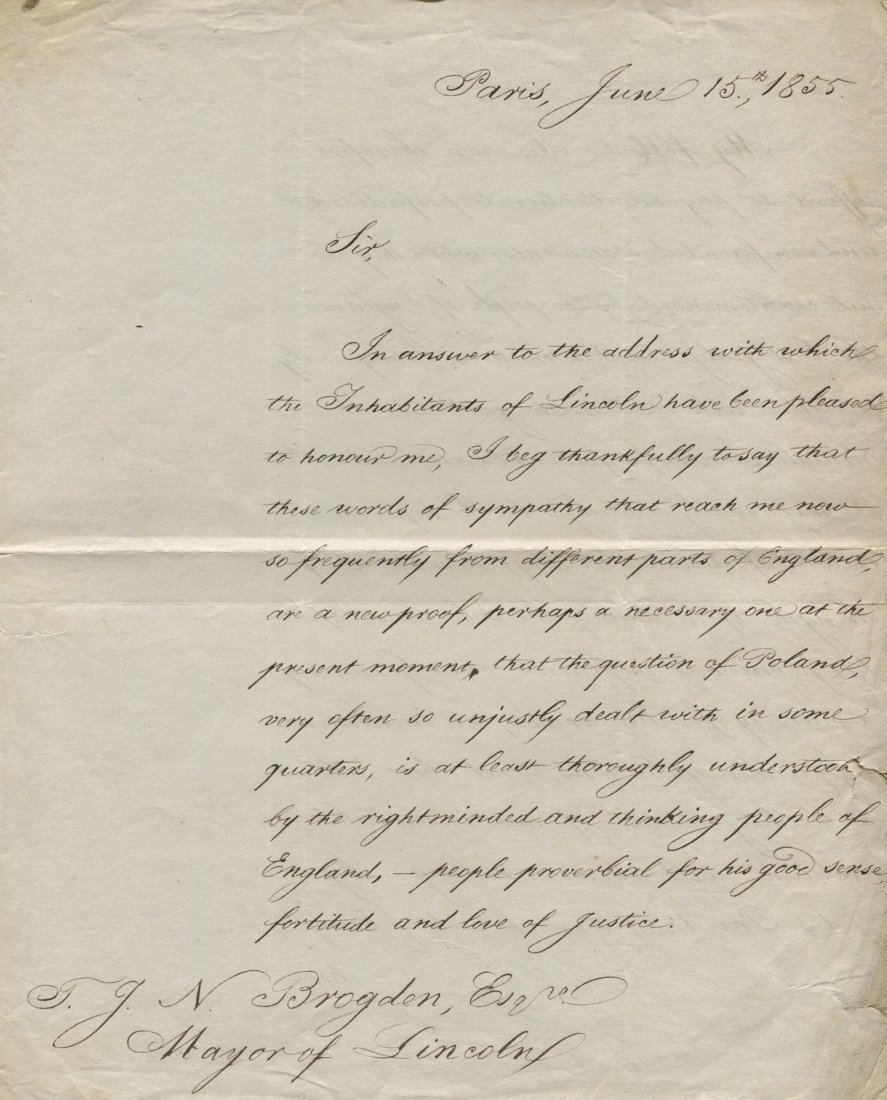 Paris, June 15th, 1855.
Sir,
In answer to the address with which
the Inhabitants of Lincoln have been pleased
to honour me, I beg thankfully to say that
these words of sympathy that reach me now
so frequently from different parts of England,
are a new proof, perhaps a necessary one at the
present moment, that the question of Poland,
very often so unjustly dealt with in some
quarters, is at least thoroughly understook
by the rightminded and thinking people of
England, — people proverbial for his good sense,
fortitude and love of Justice.
T. J. N. Brogden, Esqre.
Mayor of Lincoln